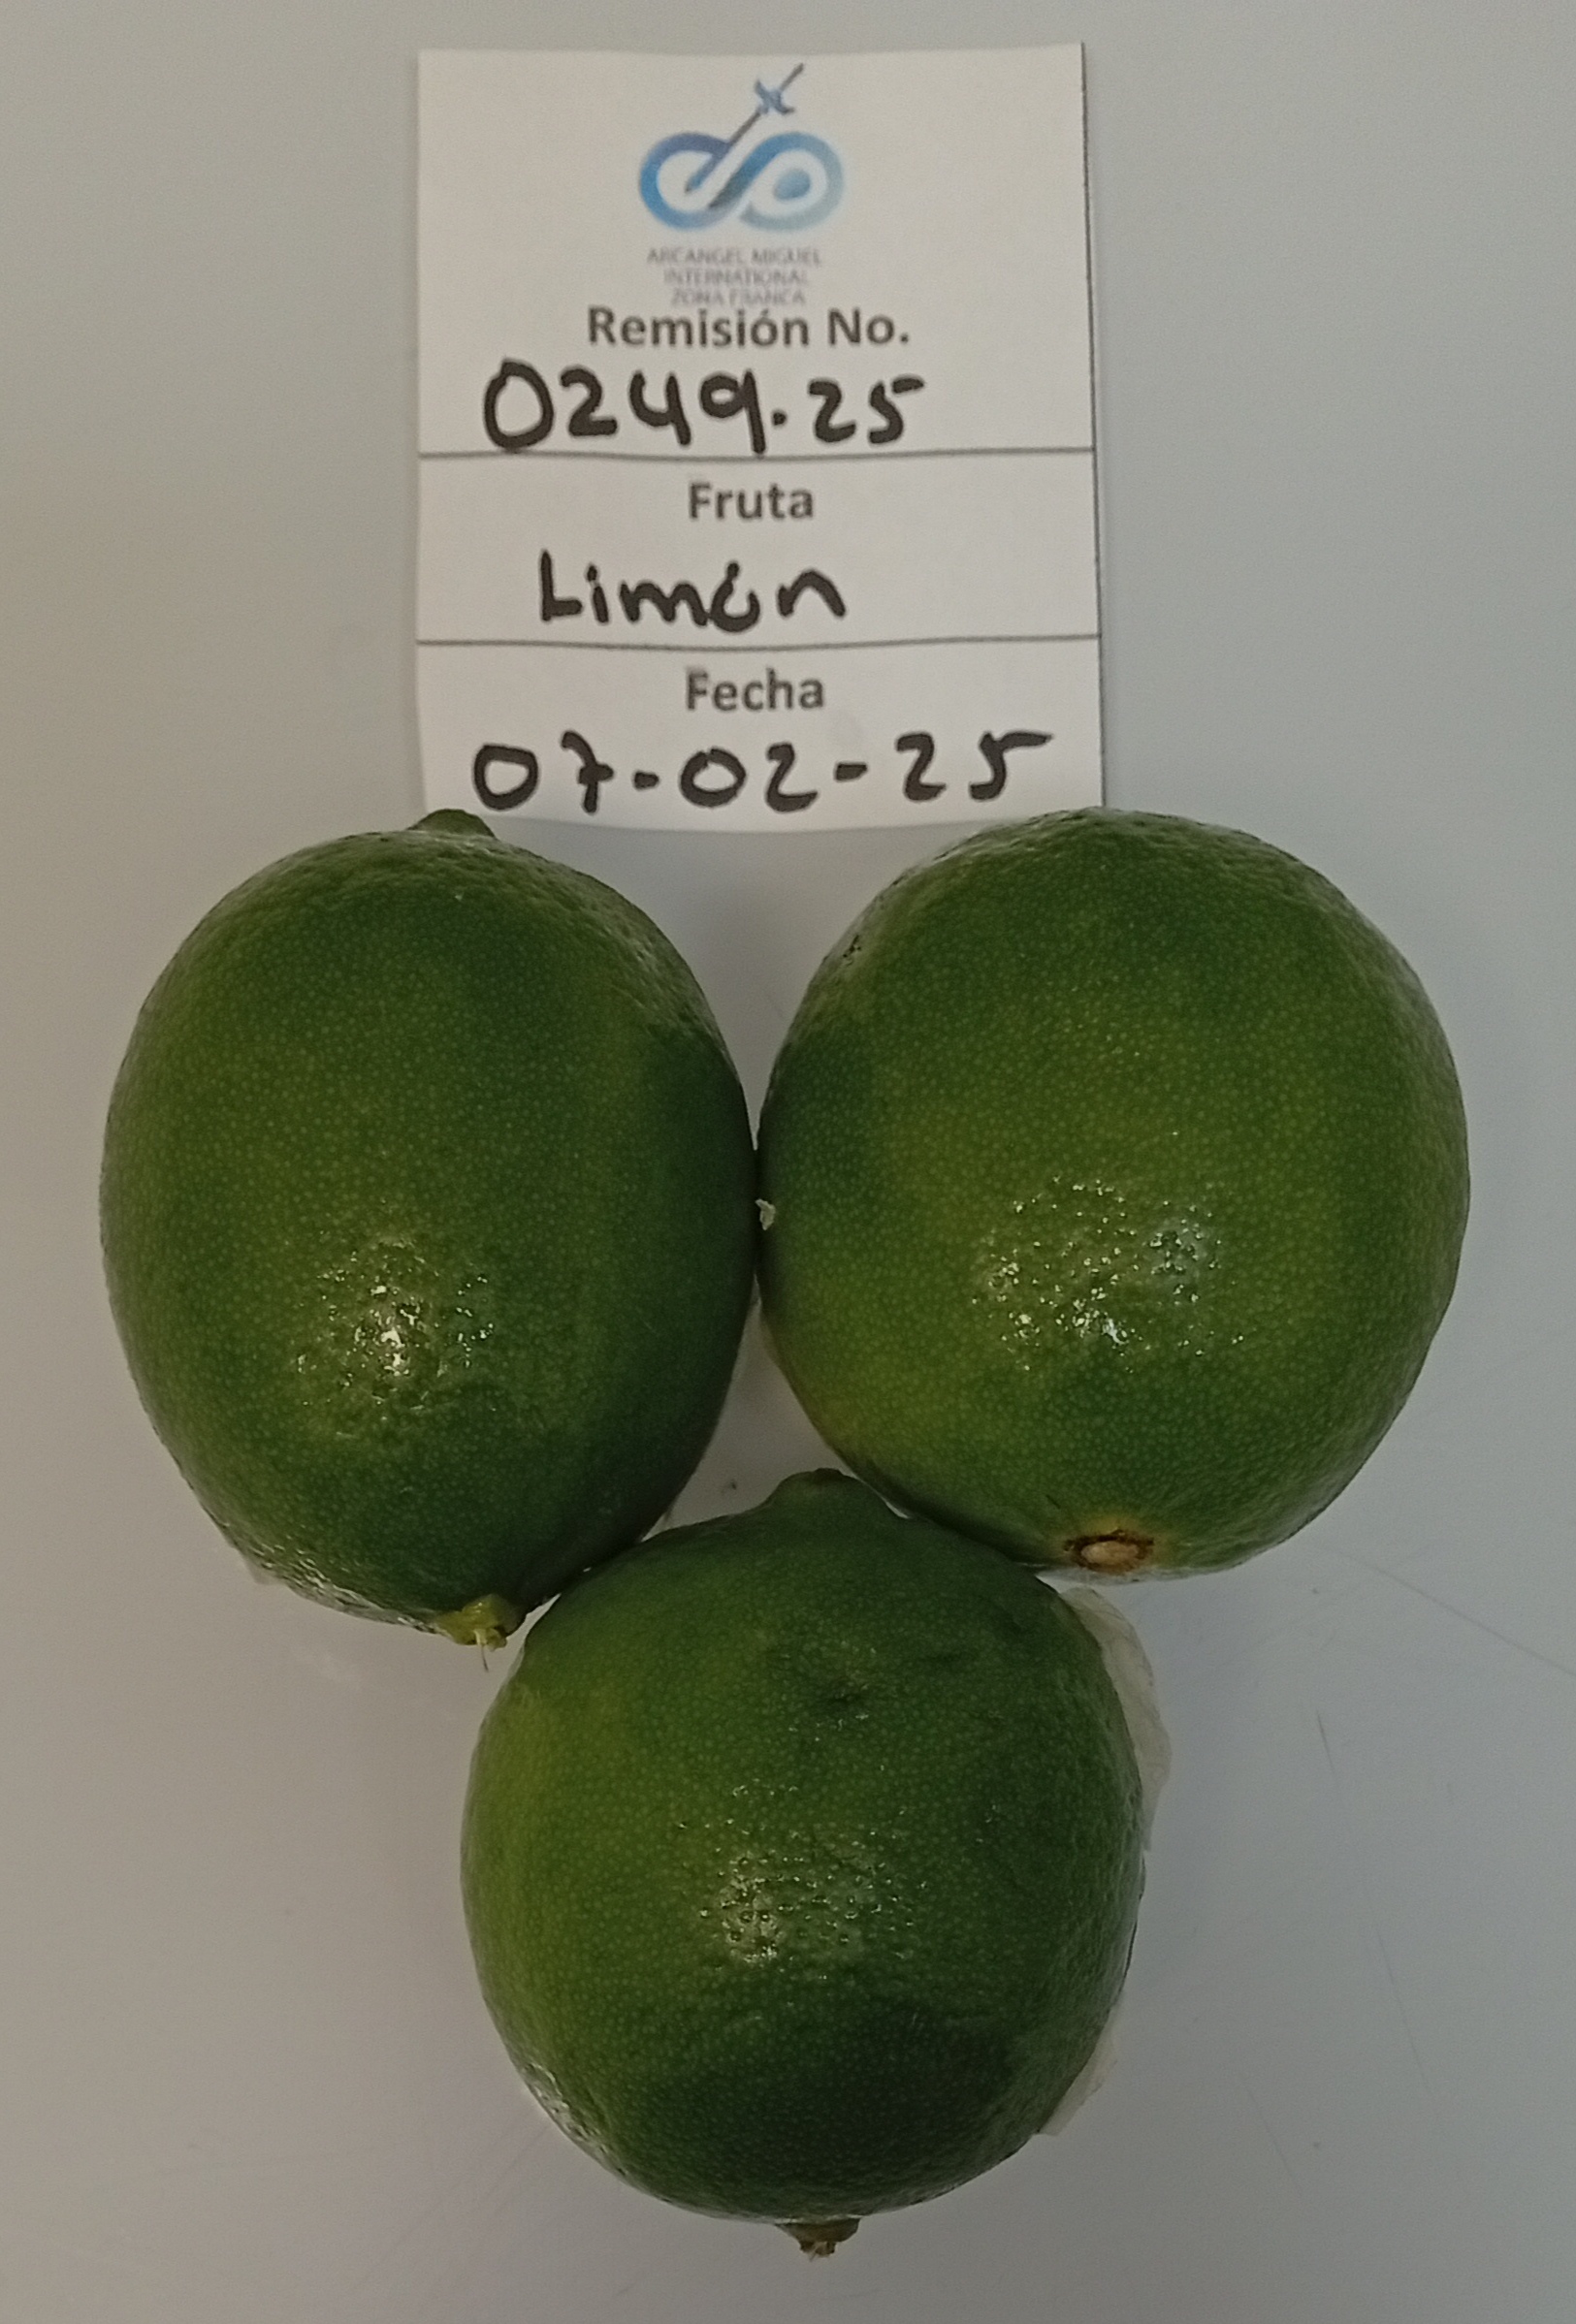 ARCANGEL MIGUEL
INTERNATIONAL
ZONA FRANCA
Remisión No.
0249.25
Fruta
Limón
Fecha
07-02-25